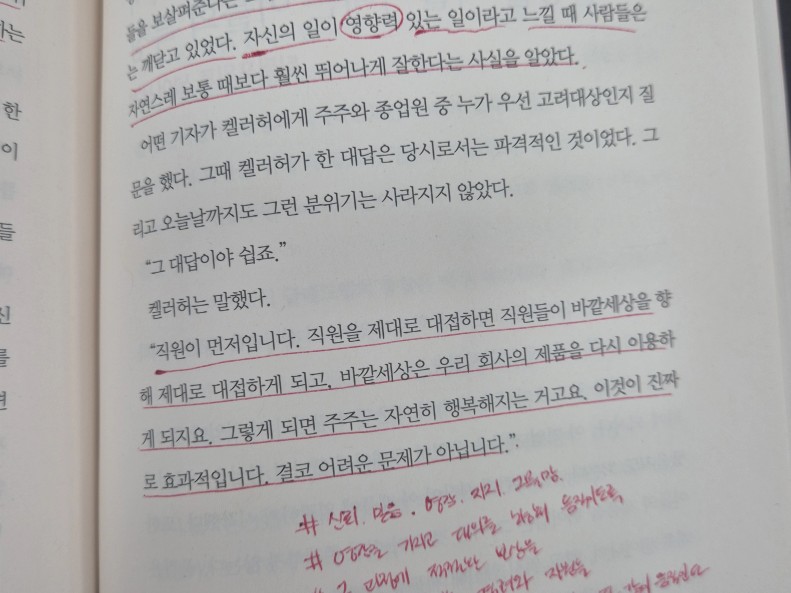 들을 보살펴준다는
는 깨닫고 있었다. 자신의 일이 영향력 있는 일이라고 느낄 때 사람들은
자연스레 보통 때보다 훨씬 뛰어나게 잘한다는 사실을 알았다.
어떤 기자가 켈러허에게 주주와 종업원 중 누가 우선 고려대상인지 질
문을 했다. 그때 켈러허가 한 대답은 당시로서는 파격적인 것이었다. 그
리고 오늘날까지도 그런 분위기는 사라지지 않았다.
“그 대답이야 쉽죠.”
켈러허는 말했다.
“직원이 먼저입니다. 직원을 제대로 대접하면 직원들이 바깥세상을 향
해 제대로 대접하게 되고, 바깥세상은 우리 회사의 제품을 다시 이용하
게 되지요. 그렇게 되면 주주는 자연히 행복해지는 거고요. 이것이 진짜
로 효과적입니다. 결코 어려운 문제가 아닙니다.”
# 신뢰. 믿음. 열정. 지지
# 열정을 가지고